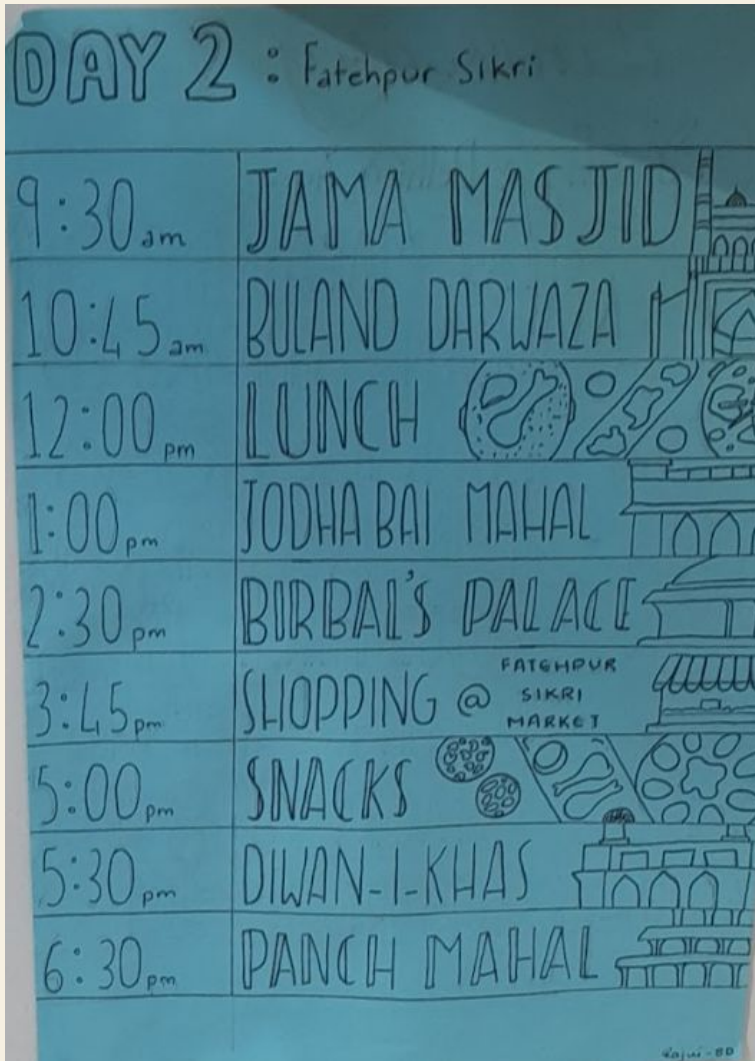 DAY 2 : Fatehpur Sikri
9:30 am JAMA MASJID
10:45 am BULAND DARWAZA
12:00 pm LUNCH
1:00 pm JODHA BAI MAHAL
2:30 pm BIRBAL'S PALACE
3:45 pm SHOPPING @ FATEHPUR SIKRI MARKET
5:00 pm SNACKS
5:30 pm DIWAN-I-KHAS
6:30 pm PANCH MAHAL